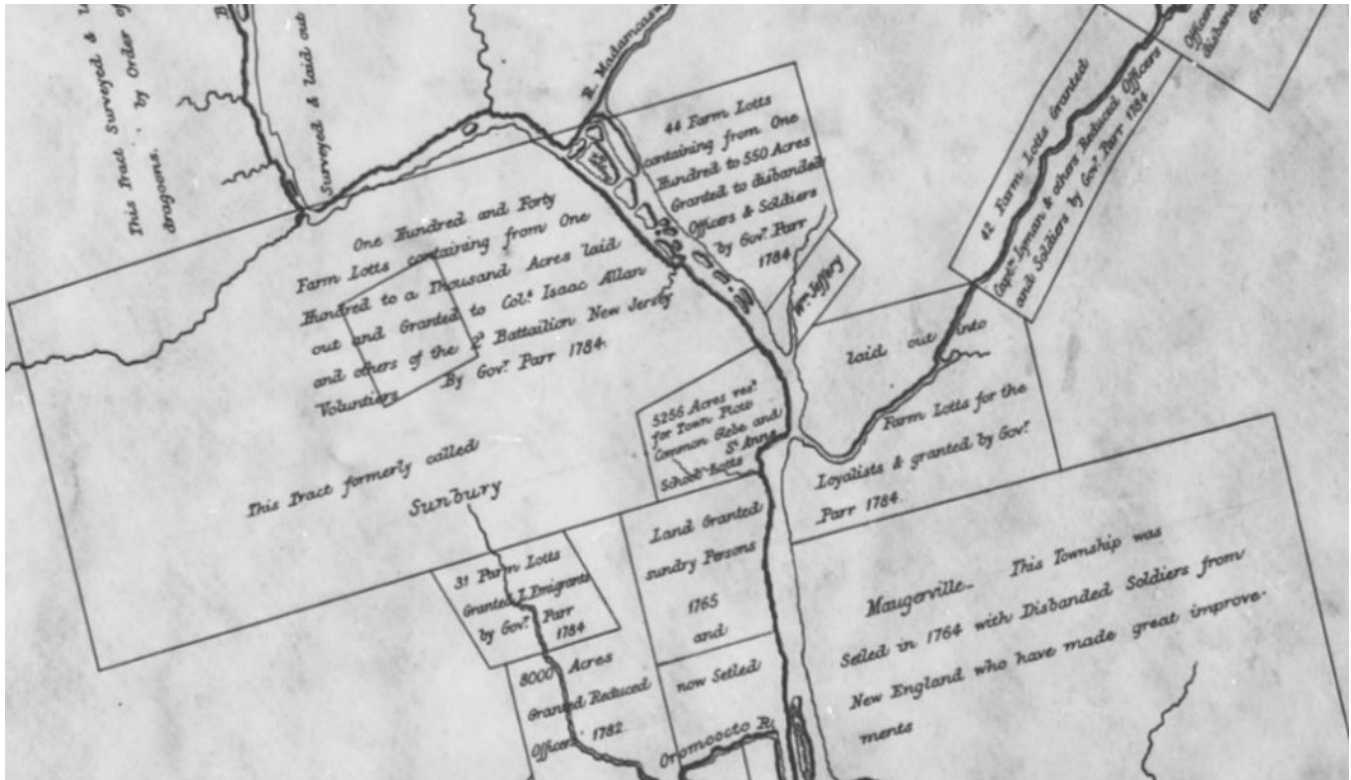 This Tract Surveyed &
by Order of
dragoons.
Surveyed & laid out
R. Madamcasw
44 Farm Lotts
containing from One
Hundred to 550 Acres
Granted to disbanded
Officers & Soldiers
by Govr. Parr
1784
Wm. Jeffery
42 Farm Lotts Granted
Captn. Lyman & others Reduced Officers
and Soldiers by Govr. Parr 1784
Officer
disband
One Hundred and Forty
Farm Lotts containing from One
Hundred to a Thousand Acres laid
out and Granted to Coll. Isaac Allan
and others of the 2d. Battailion New Jersey
Voluntiers By Govr. Parr 1784.
This Tract formerly called
Sunbury
5256 Acres resd.
for Town Plott
Common Glebe and
St. Anns
School Lotts
laid out into
Farm Lotts for the
Loyalists & granted by Govr.
Parr 1784
31 Farm Lotts
Granted J. Emigrants
by Govr. Parr
1784
Land Granted
sundry Persons
1765
and
now Setled
8000 Acres
Granted Reduced
Officers 1782
Oromoocto R.
Maugerville_ This Township was
Setled in 1764 with Disbanded Soldiers from
New England who have made great improve-
ments